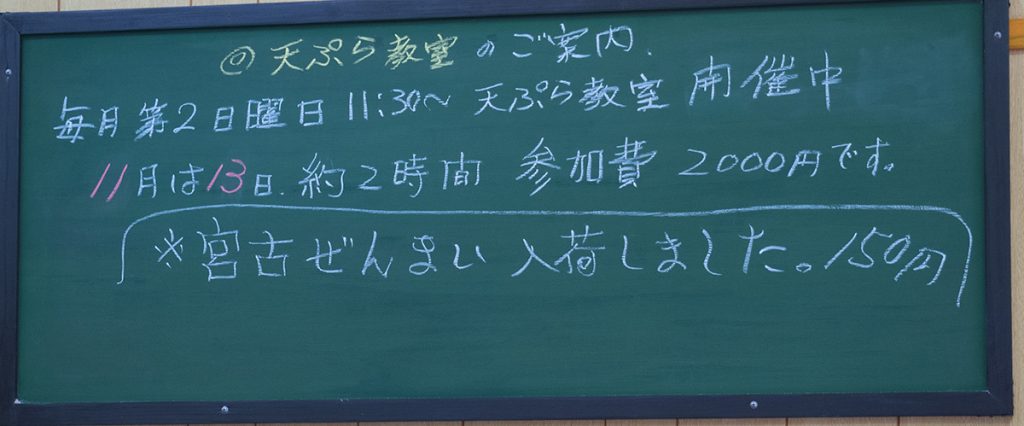 ◎天ぷら教室のご案内.
毎月第2日曜日11:30〜天ぷら教室開催中
11月は13日.約2時間 参加費 2000円です。
※宮古ぜんまい入荷しました。150円